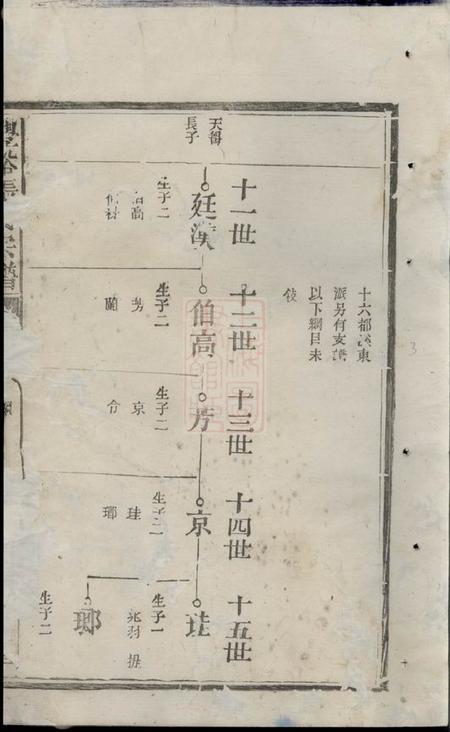 十六都溪東
派另有支譜
以下綱目未
敍
十一世
十二世
十三世
十四世
十五世
長子
廷
生子二
伯高
伯高
生子二
芳
蘭
芳
生子二
京
令
京
生子二
珪
瑯
珪
生子一
瑯
生子二
宗譜